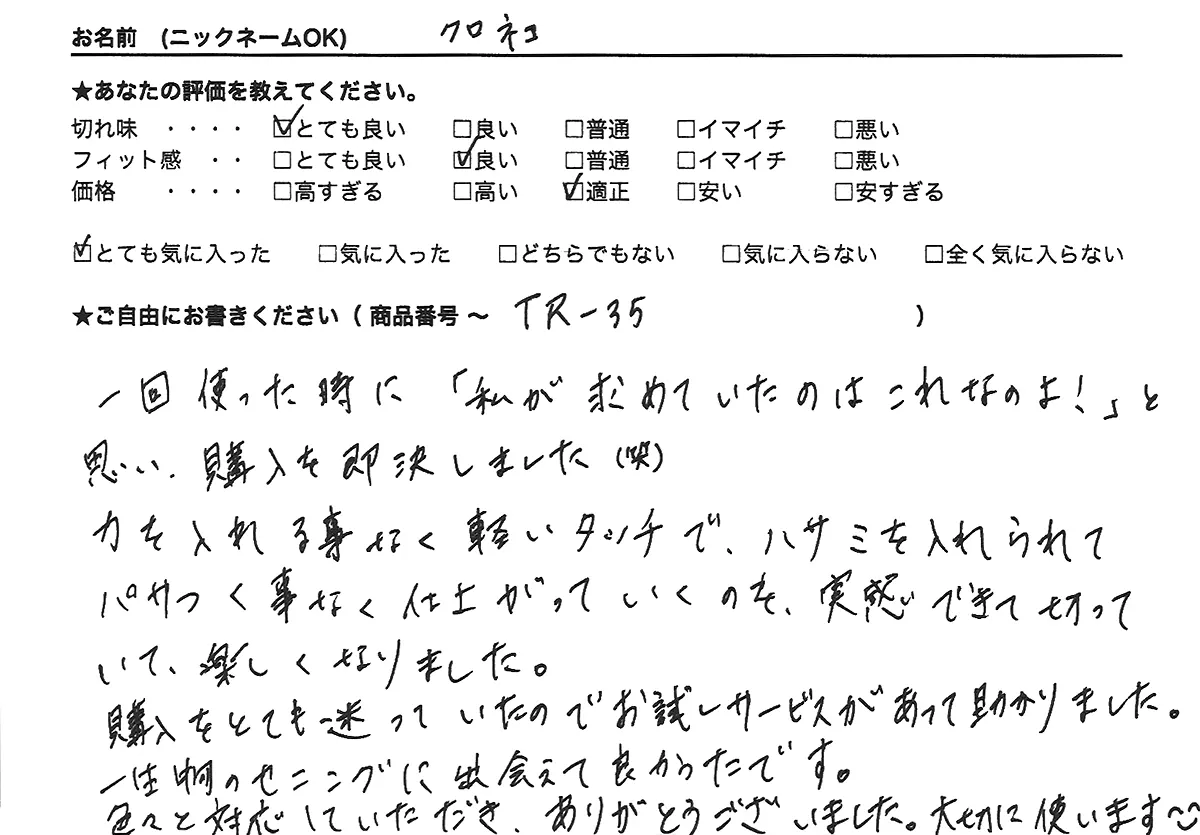 お名前 (ニックネームOK) クロネコ
★あなたの評価を教えてください。
切れ味 ・・・・ ☑とても良い □良い □普通 □イマイチ □悪い
フィット感 ・・ □とても良い ☑良い □普通 □イマイチ □悪い
価格 ・・・・ □高すぎる □高い ☑適正 □安い □安すぎる
☑とても気に入った □気に入った □どちらでもない □気に入らない □全く気に入らない
★ご自由にお書きください ( 商品番号 ~ TR-35 )
一回使った時に「私が求めていたのはこれなのよ!」と
思い、購入を即決しました(笑)
力を入れる事なく軽いタッチで、ハサミを入れられて
パサつく事なく仕上がっていくのを、実感できて切って
いて、楽しくなりました。
購入をとても迷っていたのでお試しサービスがあって助かりました。
一生物のセニングに出会えて良かったです。
色々と対応していただき、ありがとうございました。大切に使います〜